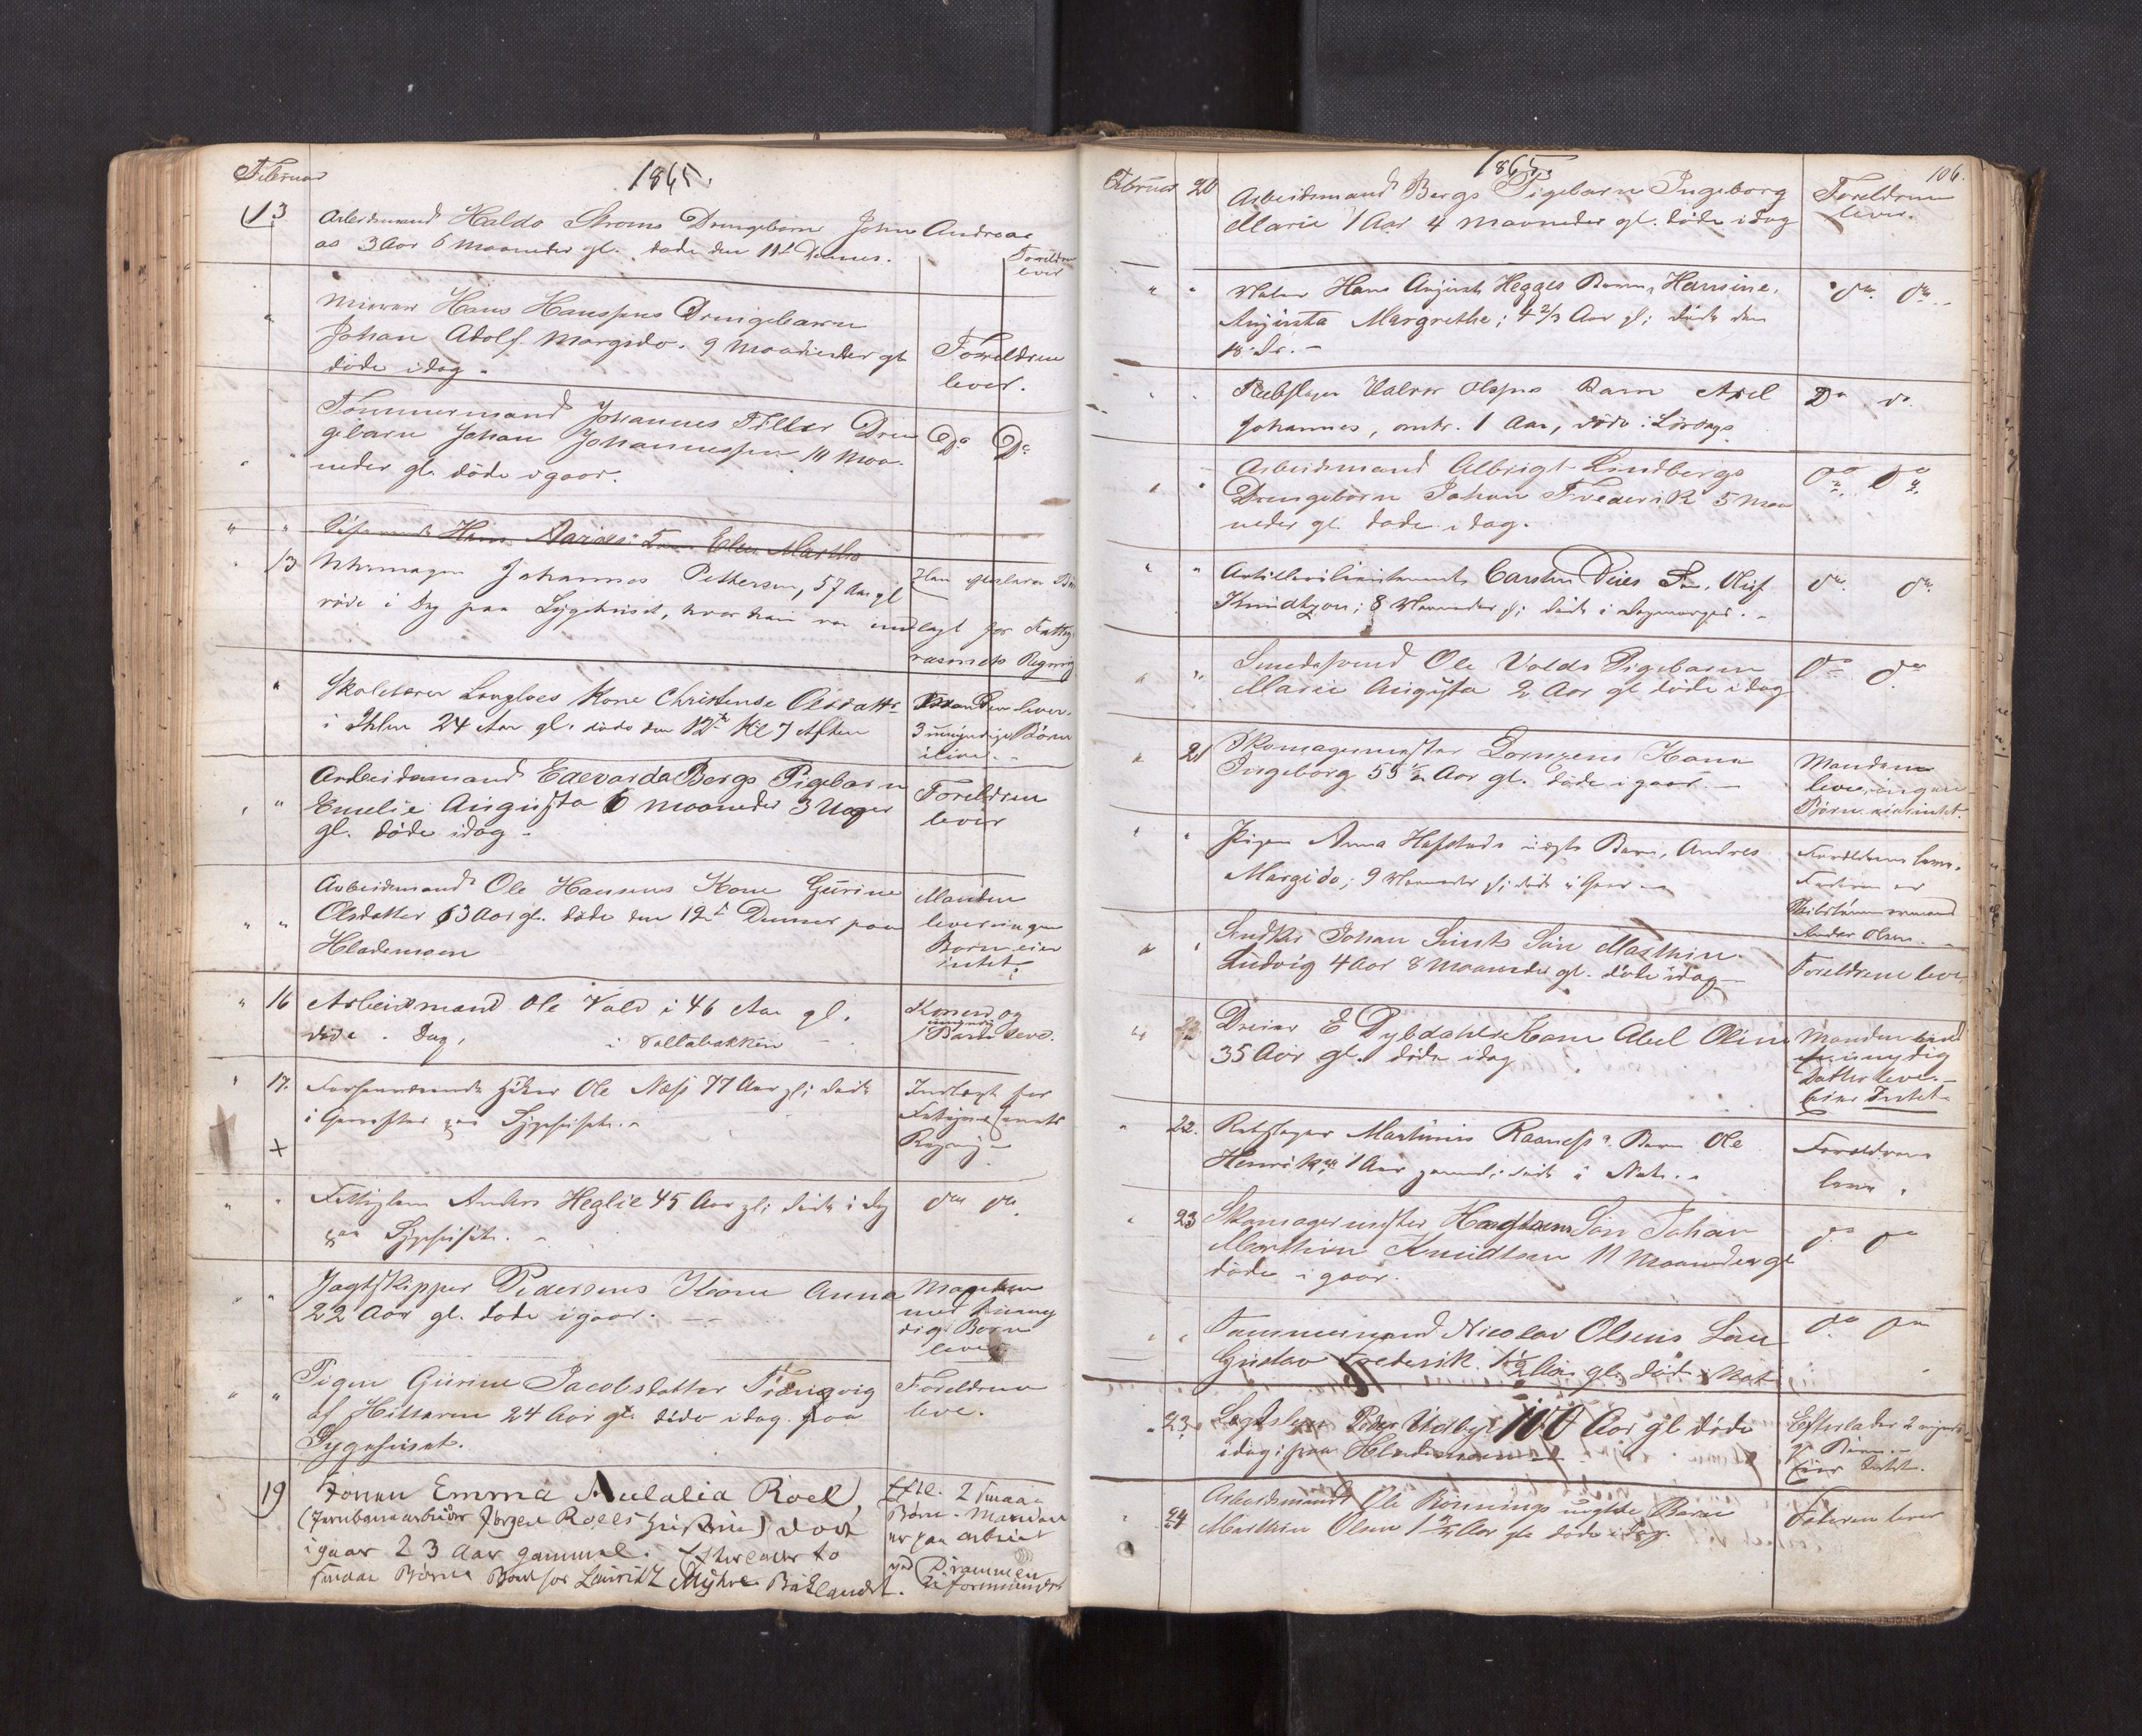 Februar
1865.
13 Arbeidsmand Haldo Strøms Drengebarn John Andreas
3 Aar 6 Maaneder gl. døde den 11te Dennes.
Foreldrene
lever
" Murer Hans Hanssens Drengebarn
Johan Adolf Margido. 9 Maaneder gl
døde idag.
Foreldrene
lever.
" " Tømmermand Johannes Tiller Dren
gebarn Johan Johannessen 10 Maa-
neder gl. døde igaar.
Do Do
" " Hans Elen Martha
" 13 Johannes Pettersen, 57 Aar gl
døde i Dag paa Sygehuset, hvor han var indlagt for Fattig
væsenets Regning
" Skolelærer Langloes Kone Christense Olsdatter
i Ihlen 24 Aar gl. døde den 12te Kl 7 Aften
Manden lever.
3 umyndige Børn
ilive.
" " Arbeidsmand Edevarda Bergs Pigebarn
Emelie Augusta 6 Maaneder 3 Uger
gl. døde idag.
Foreldrene
lever
" " Arbeidsmand Ole Hansens Kone Gurine
Olsdatter 63 Aar gl. døde den 12te Dennes paa
Hlademoen
Manden
lever ingen
Børn eier
intet.
" 16 Arbeidsmand Ole Vold i 46 Aar gl.
døde i Dag, i Vollabakken
Konen og
umyndig
1 Barn leve.
" 17. Ole Næss 77 Aar gl; døde
i paa Sygehuset.
Indlagt for
Fattigvæsenets
Regning
" " Fattiglem Anders Heglie 45 Aar gl; døde i Dag
paa Sygehuset.
do do.
" " Jagtskipper Pedersens Kone Anna
22 Aar gl. døde igaar.
Manden
med umyn
dige Børn
lever
" " Pigen Gurine Jacobsdatter
af Hitteren 24 Aar gl. døde idag paa
Sygehuset.
Foreldrene
leve.
19 Konen Emma Aulalia Roel,
(Jernbanearbeider Jørgen Roels Hustru) død
igaar 23 Aar gammel. Efterlader to
smaa Børn Boede hos Lauritz Myhre Baklandet.
Eftl. 2 smaa
Børn. Manden
er paa arbeide
ved Drammen
Februar
1865.
106.
20 Arbeidsmand Bergs Pigebarn Ingeborg
Marie 1 Aar 4 Maaneder gl. døde idag
Foreldrene
lever.
" " Maler Hans August Hegges Barn, Hansine
Augusta Margrethe; 4 2/3 Aar gl; døde den
18 ds.
do. do.
" " Rebslager Halvor Olsens Barn Axel
Johannes, omtr. 1 Aar, døde i Lørdags
Do do
" " Arbeidsmand Albrigt Lindbergs
Drengebarn Johan Frederik 5 Maa
neder gl. døde idag.
do. do.
" " Carsten Deies Søn, Oluf
Knudtzon; 8 Maaneder gl; døde i Dagmorges.
do. do.
" " Smedsvend Ole Volds Pigebarn
Marie Augusta 2 Aar gl døde idag
do do
" 21 Skomagermester Lornzens Kone
Ingeborg 55 1/2 Aar gl. døde igaar.
Manden
lever, ingen
Børn eier intet.
" " Pigen Anna Hafstads uægte Barn, Andres
Margido; 9 Maaneder gl; døde i Gaar
Forældrene leve.
Faderen er
Skibstømmermand
Andor Olsen.
" " Snedker Johan Smits Søn Marthin
Ludvig 4 Aar 8 Maaneder gl. døde idag
Foreldrene leve
" 22 Dreier E Dybdahls Kone Abel Oline
35 Aar gl. døde idag
Manden
umyndig
Datter lever.
Eier Intet
" 22. Rebslager Martinus Raaness's Barn Ole
Henrik, 1 Aar gammel; døde i Nat.
Forældrene
leve.
" 23 Skomagermester Søn Johan
Marthin Knudtsen 11 Maaneder gl
døde igaar.
do do
" " Tømmermand Nicolai Olsens Søn
Gustav Frederik. 1 1/2 Aar gl. død i Nat
do do
" 23 Peder 100 Aar gl døde
idag paa Hlademoen
Efterlader 2
Børn.
Eier Intet.
" 24 Arbeidsmand Ole Rønnings uægte Barn
Marthin Olsen 1 Aar gl døde i Dag.
Faderen lever